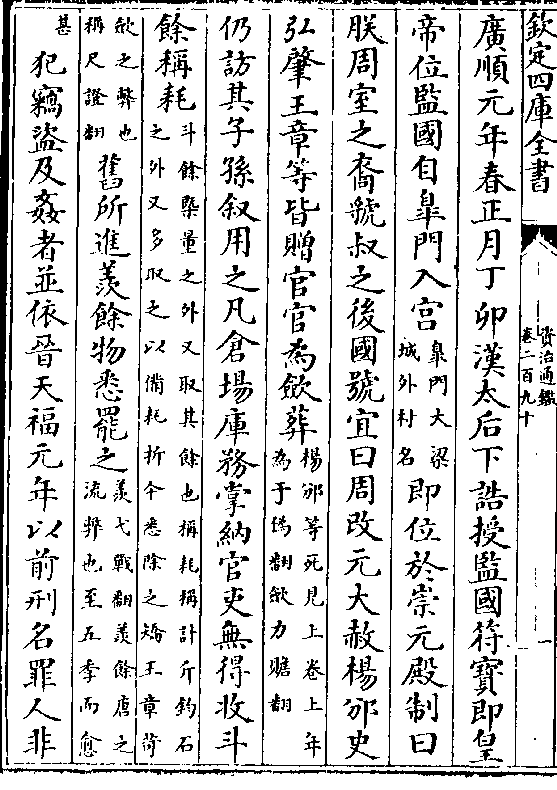 欽定四庫全書
資治通鑑
卷二百九十
一
廣順元年春正月丁卯漢太后下誥授監國符寶即皇
帝位監國自臯門入宮臯門大梁
城外村名即位於崇元殿制曰
朕周室之裔虢叔之後國號宜曰周改元大赦楊邠史
弘肇王章等皆贈官官為斂葬楊邠等死見上卷上年
為于偽翻斂力贍翻
仍訪其子孫叙用之凡倉場庫務掌納官吏無得收斗
餘稱耗斗餘槩量之外又取其餘也稱耗稱計斤鈞石
之外又多取之以備耗折今悉除之矯王章苛
斂之弊也
稱尺證翻舊所進羨餘物悉罷之羨弋戰翻羨餘唐之
流弊也至五季而愈
甚犯竊盜及姦者並依晉天福元年以前刑名罪人非